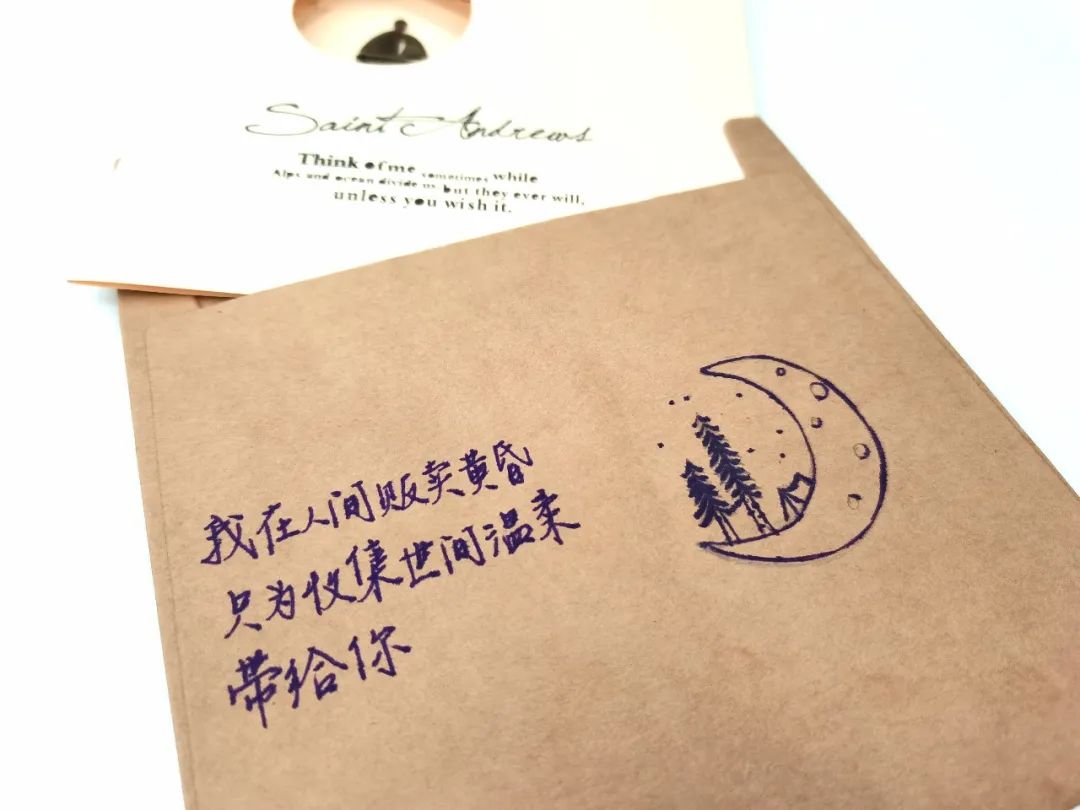 Saint Andrews
Think of me sometimes while
Alps and ocean divide us, but they ever will,
unless you wish it.
我在人间贩卖黄昏
只为收集世间温柔
带给你